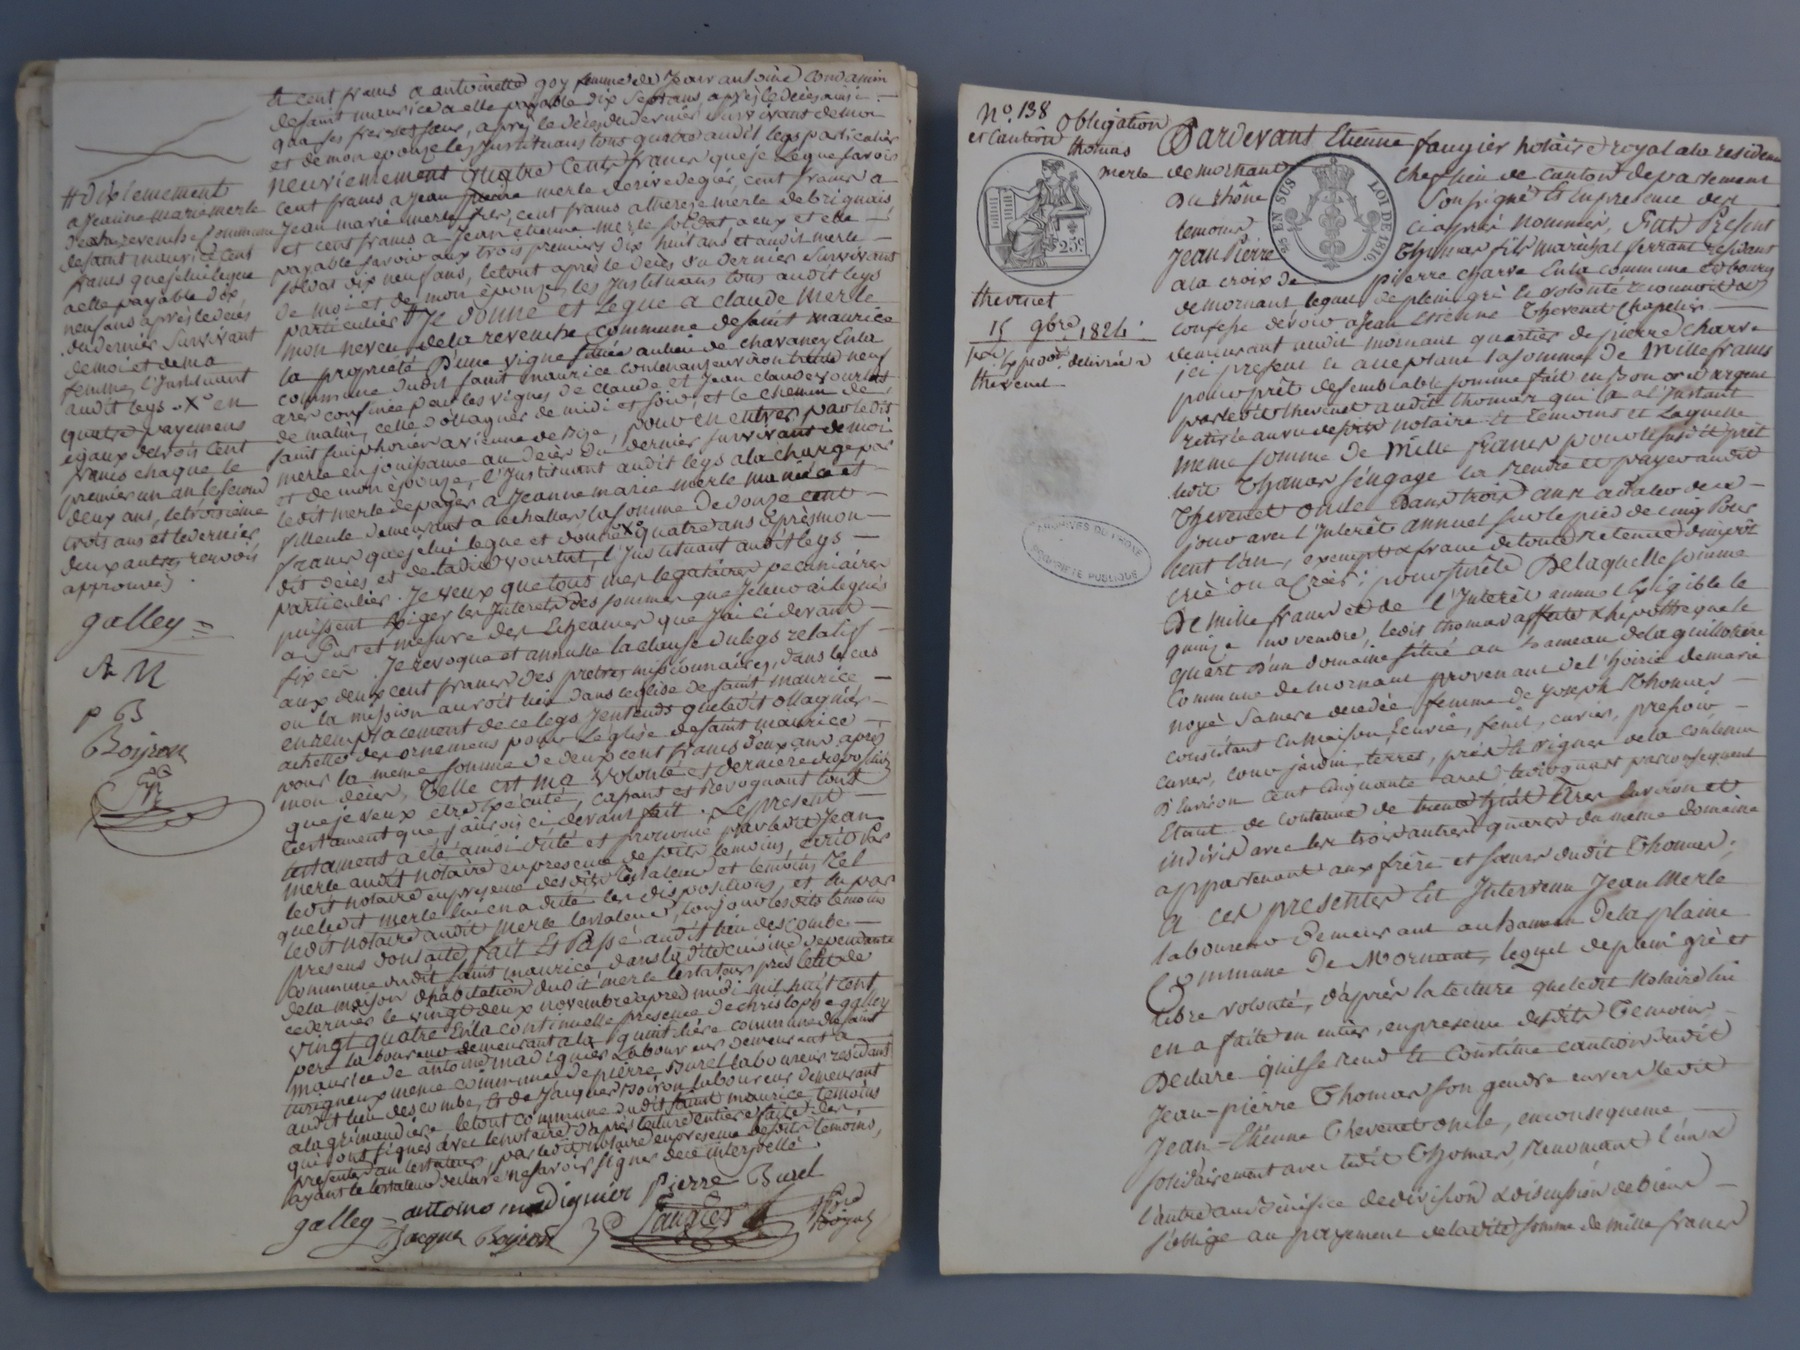 et cent francs a antoinette goy femme de Jean antoine condamin
de saint maurice a elle payable dix sept ans après le décès ainsi
qua ses freres et sœur, après le décès du dernier survivant de moi
et de mon epouze les Jnstituans tous quatre audit legs particulier
neuviemement quatre cents francs que je legue savoir
cent francs a Jean pierre merle de rive de gier, cent francs a
Jean marie merle, cent francs a therese merle de brignais
et cent francs a Jean etienne merle soldat a eux et elle
payable savoir aux trois premiers dix huit ans et audit merle
soldat dix neuf ans, le tout après le deces du dernier survivant
de moi et de mon épouze, les Jnstituans tous audit legs
particulier # Je donne et legue a claude merle
mon neveu de la revenche commune de saint maurice
la propriété d'une vigne située au lieu de chavaney en la
commune dudit saint maurice contenant environ trente neuf
ares confinée par les vignes de claude et Jean claude vourlat
de matin, celle d'ollagnier de midi et soir, et le chemin de
saint simphorien a vienne de bize, pour en entrer par ledit
merle en jouissance au décès du dernier survivant de moi
et de mon épouze, l'Jnstituant audit legs a la charge par
ledit merle de payer a Jeanne marie merle ma niéce et
filleule demeurant a echallas la somme de douze cent
francs que je lui legue et donne X° quatre ans après mon
dit décès et de ladite vourlat, l'Jnstituant audit legs
particulier. Je veux que tous mes legataires pecuniaires
puissent exiger les Jnterets des sommes que je leur ai legués
a fur et mesure des Echeances que J'ai ci devant
fixées. Je revoque et annulle la clause du legs relatif
aux deux cent francs des pretres missionnaires, dans le cas
ou la mission auroit lieu dans l'eglise de saint maurice
en remplacement de ce legs J'entends que ledit ollagnier
achette des ornemens pour l'eglise de saint maurice
pour la meme somme de deux cent francs deux ans après
mon décès, Telle est ma volonté et derniere disposition
que je veux etre Executé, cassant et Revoquant tout
testament que j'aurois ci devant fait. Le present
testament a été ainsi dicté et prononcé par ledit Jean
merle audit notaire en presence desdits temoins, ecrit par
ledit notaire en presence desdits testateur et temoins tel
que ledit merle lui en a dicté les dispositions, et lu par
ledit notaire audit merle testateur, toujours lesdits temoins
presens dont acte, fait Et Passé audit lieu des combe
commune dudit saint maurice dans la dite cuisine dependante
de la maison d'habitation dudit merle testateur près le lit de
ce dernier le vingt deux novembre après midi mil huit cent
vingt quatre En la continuelle presence de christophe galley
pere laboureur demeurant a la guintliere commune de saint
maurice de antoine madignier Laboureur demeurant a
turigneux meme commune, de pierre Burel laboureur residant
audit lieu des combe, Et de Jacques Boiron laboureur demeurant
a la grimaudiere le tout commune dudit saint maurice temoins
qui ont signés avec le notaire d'après lecture entiere faite des
presentes au testateur, par ledit notaire en presence desdits temoins,
ayant le testateur declaré ne savoir signer de ce interpellé
galley antoine madignier Pierre Burel
Jacque Boiron faugier
# dixiemement
a Jeanne marie merle
de la revenche commune
de saint maurice cent
francs que je lui legue
a elle payable dix
neuf ans après le décès
du dernier survivant
de moi et de ma
femme, l'Jnstituant
audit legs. X° en
quatre payemens
égaux de trois cent
francs chaque le
premier un an le second
deux ans, le troisième
trois ans et le dernier
deux autres renvois
approuvés.
galley
A M
P B
Boiron
N° 138 obligation
et Caution thomas
merle
25c.
25 EN SUS LOI DE 1816
thevenet
15 9bre 1824
delivrée a
thevenet
ARCHIVES DU RHÔNE
PROPRIÉTÉ PUBLIQUE
Pardevant Etienne faugier notaire royal a la residence
de mornant chef lieu de canton departement
du rhône soussigné Et En presence des
temoins ci après nommés, Fut Present
Jean Pierre Thomas fils marechal ferrant residant
a la croix de pierre charve En la commune et bourg
de mornant lequel de plein gré et volonté reconnoit et
confesse devoir a Jean Etienne Thevenet Chapelier
demeurant audit mornant quartier de pierre charve
ici present et acceptant la somme de Mille francs
pour prêt de semblable somme fait en bon or et argent
par ledit thevenet audit thomas qui l'a a l'Jnstant
retirée au vu desdits notaire et temoins et laquelle
meme somme de Mille francs pour le susdit prêt
ledit Thomas s'engage la rendre et payer audit
Thevenet oncle dans trois ans a dater de ce
jour avec l'Jnterêt annuel sur le pied de cinq pour
cent l'an, exempt & franc de toute retenue d'impôt
créé ou a créer; pour sureté De laquelle somme
De mille francs et de l'Jnterêt annuel Exigible le
quinze novembre, ledit thomas affecte & hypotheque le
quart d'un domaine situé au hameau de la guillotiere
Commune de mornant provenant de l'hoirie de marie
noyé sa mere decedée femme de Joseph Thomas
consistant en maison, Ecurie, fenil, cuvier, pressoir
cuves, cour jardin, terres, près & vignes de la contenue
D'Environ cent cinquante ares ledit quart par consequent
Etant de contenue de trente huit ares environ et
indivis avec les trois autres quarts du même domaine
appartenant aux frère et sœurs dudit Thomas;
A ces presentes Est Jntervenu Jean Merle
laboureur demeurant au hameau de la plaine
Commune de Mornant, lequel de plein gré et
libre volonté, d'après la lecture que ledit notaire lui
en a faite en entier, en presence desdits Temoins
Declare qu'il se rend et Constitue caution dudit
Jean-pierre Thomas son gendre envers ledit
Jean-Etienne Thevenet oncle, en consequence
solidairement avec ledit Thomas, Renoncant l'un &
l'autre aux benefice de division & discussion de biens
s'oblige au payement de ladite somme de mille francs